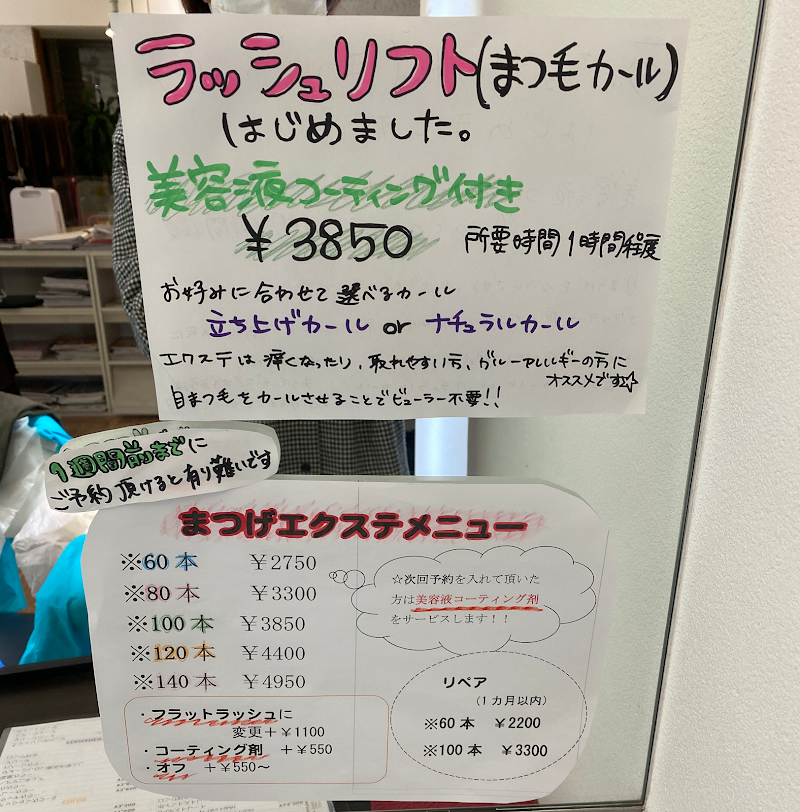 ラッシュリフト(まつ毛カール)
はじめました。
美容液コーティング付き
¥3850 所要時間1時間程度
お好みに合わせて選べるカール
立ち上げカール or ナチュラルカール
エクステは薄くなったり、取れやすい方、グルーアレルギーの方に
オススメです☆
自まつ毛をカールさせることでビューラー不要!!
1週間前までに
ご予約頂けると有り難いです
まつげエクステメニュー
※60本 ¥2750
※80本 ¥3300
※100本 ¥3850
※120本 ¥4400
※140本 ¥4950
・フラットラッシュに
変更+¥1100
・コーティング剤 +¥550
・オフ +¥550~
☆次回予約を入れて頂いた
方は美容液コーティング剤
をサービスします!!
リペア
(1カ月以内)
※60本 ¥2200
※100本 ¥3300